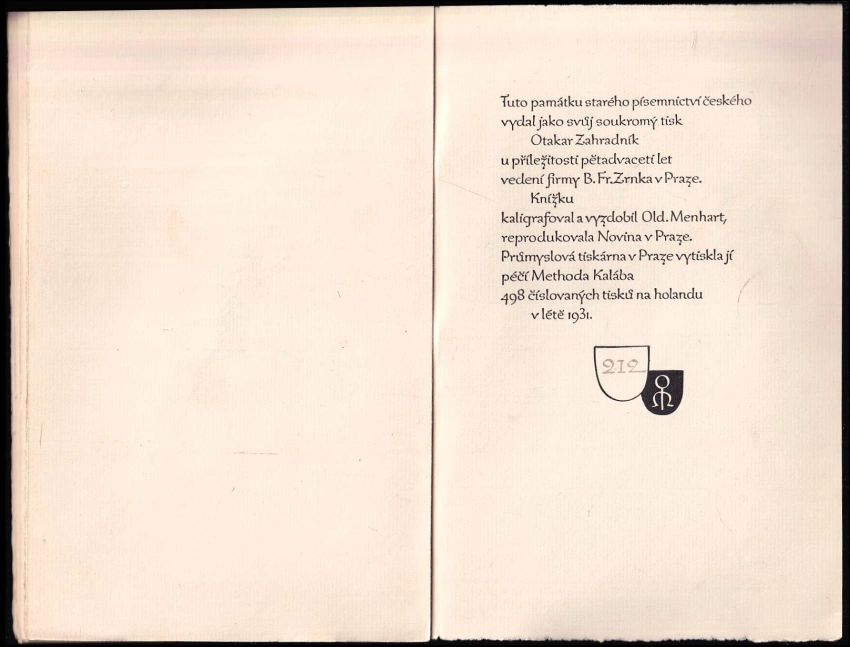 Tuto památku starého písemnictví českého
vydal jako svůj soukromý tisk
Otakar Zahradník
u příležitosti pětadvaceti let
vedení firmy B. Fr. Zrnka v Praze.
Knížku
kaligrafoval a vyzdobil Old. Menhart,
reprodukovala Novina v Praze.
Průmyslová tiskárna v Praze vytiskla jí
péčí Methoda Kalába
498 číslovaných tisků na holandu
v létě 1931.
212